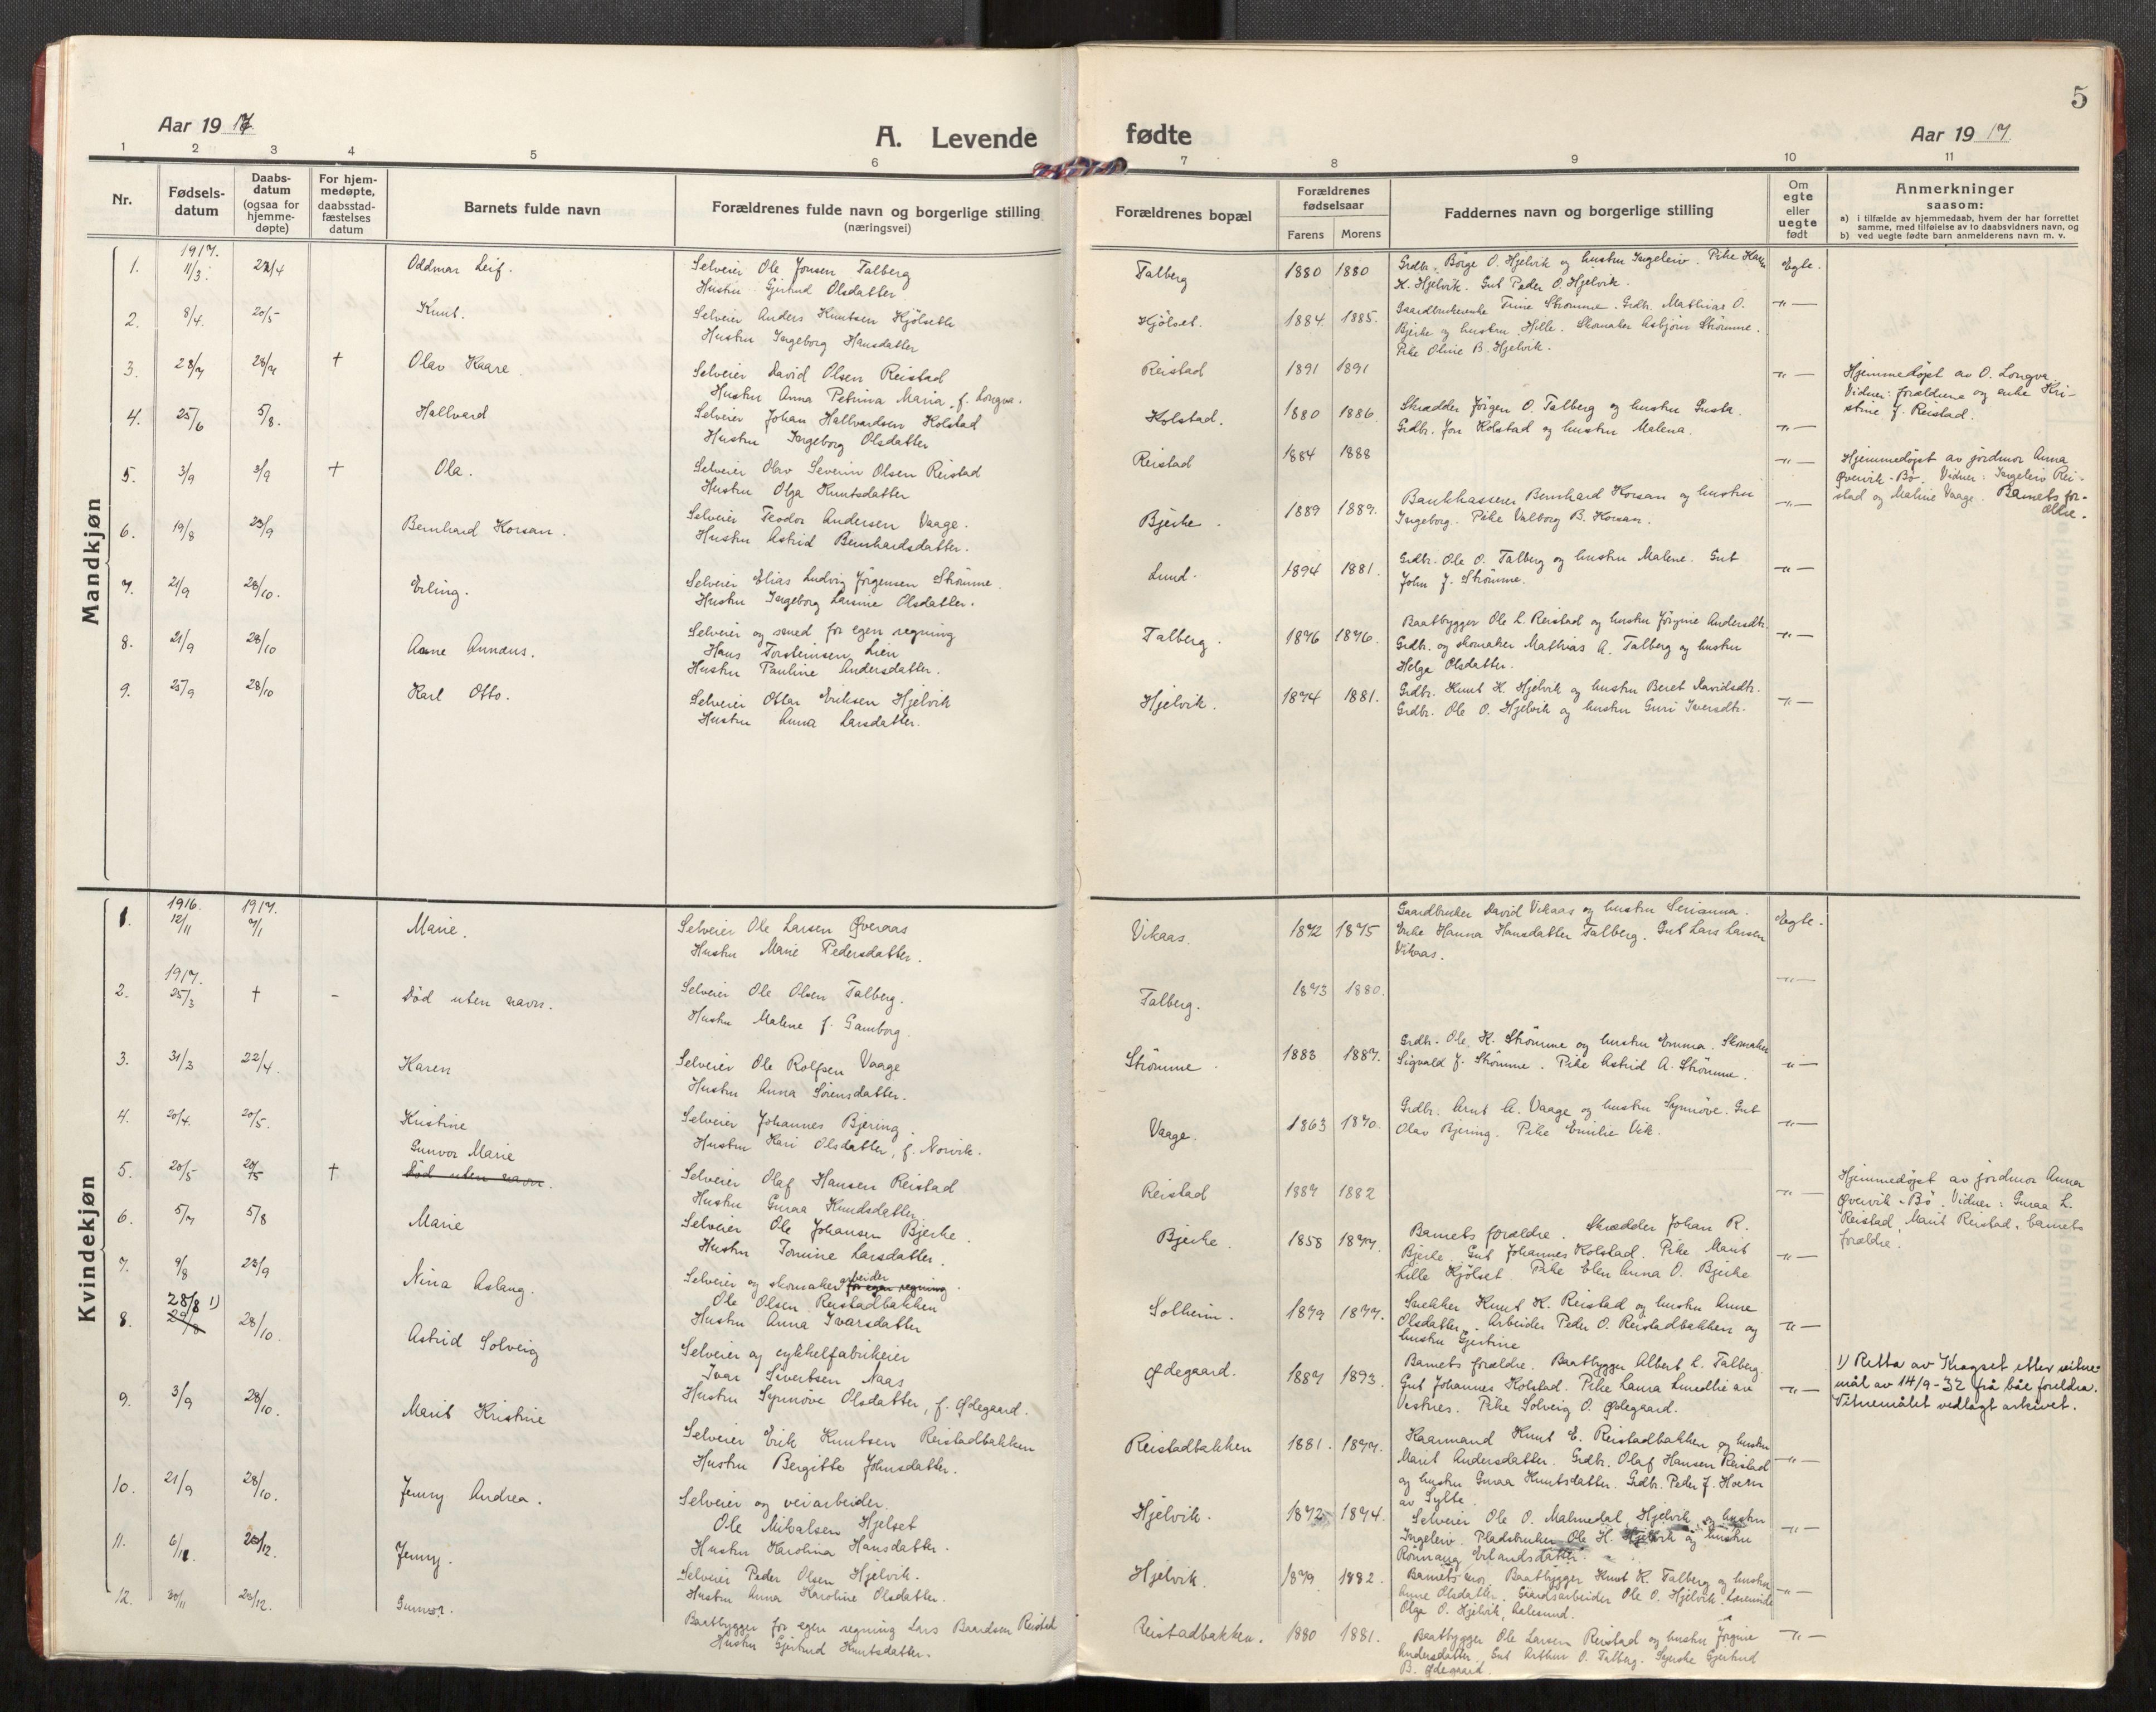 5
Aar 1917
A. Levende
fødte
Aar 1917
1 2 3 4 5 6 7 8 9 10 11
Nr.
Fødsels-
datum
Daabs-
datum
(ogsaa for
hjemme-
døpte)
For hjem-
medøpte,
daabsstad-
fæstelses
datum
Barnets fulde navn
Forældrenes fulde navn og borgerlige stilling
(næringsvei)
Forældrenes bopæl
Forældrenes
fødselsaar
Farens Morens
Faddernes navn og borgerlige stilling
Om
egte
eller
uegte
født
Anmerkninger
saasom:
a) i tilfælde av hjemmedaab, hvem der har forrettet
samme, med tilføielse av to daabsvidners navn, og
b) ved uegte fødte barn anmelderens navn m. v.
Mandkjøn
1917.
1. 11/3. 22/4 Oddmar Leif. Selveier Ole Jonsen Talberg
Hustru Gjertrud Olsdatter
Talberg 1880 1880 Grdbr. Börge O. Hjelvik og hustru Ingeleiv. Pike Karen
K. Hjelvik. Gut Peder O. Hjelvik. Egte.
2. 8/4. 20/5 Knut. Selveier Anders Knutsen Kjölseth
Hustru Ingeborg Hansdatter
Kjölset. 1884 1885. Gaardbrukerenke Trine Strömme. Grdbr. Mathias O.
Bjerke og hustru Hille. Skomaker Asbjörn Strömme.
Pike Oline B. Hjelvik. -"-
3. 28/7 28/7 † Olav Kaare. Selveier David Olsen Reistad
Hustru Anna Petrina Maria, f. Longva.
Reistad 1891 1891 -"- Hjemmedøpt av O. Longva.
Vidner: forældrene og enke Kri-
stine J. Reistad.
4. 25/6 5/8. Hallvard Selveier Johan Hallvardsen Kolstad
Hustru Ingeborg Olsdatter
Kolstad. 1880 1886. Skrædder Jörgen O. Talberg og hustru Gusta.
Grdbr. Jon Kolstad og hustru Malena. -"-
5. 3/9 3/9 † Ola. Selveier Olav Severin Olsen Reistad
Hustru Olga Knutsdatter
Reistad 1884 1888 -"- Hjemmedøpt av jordmor Anna
Øvervik-Bö. Vidner: Ingeleiv Rei-
stad og Maline Vaage. Barnets for-
ældre.
6. 19/8 23/9 Bernhard Korsan. Selveier Teodor Andersen Vaage.
Hustru Astrid Bernhardsdatter.
Bjerke. 1889 1889. Bankkasserer Bernhard Korsan og hustru
Ingeborg. Pike Valborg B. Korsan. -"-
7. 21/9 28/10. Erling. Selveier Elias Ludvig Jörgensen Strömme.
Hustru Ingeborg Larsine Olsdatter.
Lund. 1894 1881. Grdbr. Ole O. Talberg og hustru Malene. Gut
John J. Strömme. -"-
8. 21/9 28/10 Arne Annæus. Selveier og smed for egen regning
Hans Torsteinsen Lien
Hustru Pauline Andersdatter.
Talberg. 1876 1876. Baatbygger Ole L. Reistad og hustru Jörgine Andersdtr.
Grdbr. og skomaker Mathias A. Talberg og hustru
Helga Olsdatter. -"-
9. 25/9 28/10 Karl Otto. Selveier Ottar Eriksen Hjelvik
Hustru Anna Larsdatter.
Hjelvik. 1874 1881. Grdbr. Knut K. Hjelvik og hustru Beret Davidsdtr.
Grdbr. Ole O. Hjelvik og hustru Guri Iversdtr. -"-
Kvindekjøn
1916. 1917.
1. 12/11 7/1 Marie. Selveier Ole Larsen Øveraas
Hustru Marie Pedersdatter.
Vikaas. 1872 1875 Gaardbruker David Vikaas og hustru Serianna.
Enke Hanna Hansdatter Talberg. Gut Lars Larsen
Vikaas. Egte.
1917.
2. 25/3 † - Död uten navn. Selveier Ole Olsen Talberg.
Hustru Malene f. Gamborg.
Talberg. 1873 1880. -"-
3. 31/3 22/4. Karen Selveier Ole Rolfsen Vaage
Hustru Anna Sørensdatter.
Strömme. 1883 1887. Grdbr. Ole K. Strömme og hustru Emma. Skomaker
Sigvald J. Strömme. Pike Astrid A. Strömme. -"-
4. 20/4. 20/5. Kristine Selveier Johannes Bjering.
Hustru Kari Olsdatter, f. Norvik.
Vaage. 1863 1870. Grdbr. Arnt A. Vaage og hustru Synnöve. Gut
Olav Bjering. Pike Emilie Vik. -"-
Gunvor Marie
5. 20/5 20/5 † Död uten navn. Selveier Olaf Hansen Reistad
Hustru Guraa Knudsdatter
Reistad 1887 1882 -"- Hjemmedøpt av jordmor Anna
Øvervik-Bö. Vidner: Guraa L.
Reistad, Marit Reistad, barnets
forældre.
6. 5/7 5/8 Marie Selveier Ole Johansen Bjerke.
Hustru Tomine Larsdatter.
Bjerke. 1858 1877. Barnets forældre. Skrædder Johan R.
Bjerke. Gut Johannes Kolstad. Pike Marit
Lille Kjölset. Pike Elen Anna O. Bjerke -"-
7. 9/8 23/9 Nina Aslaug. Selveier og skomaker arbeider for egen regning.
Ole Olsen Reistadbakken
Hustru Anna Ivarsdatter
Solheim. 1879 1877. Snekker Knut K. Reistad og hustru Anne
Olsdatter. Arbeider Peder O. Reistadbakken og
hustru Gjertine -"-
28/8 1)
8. 29/8 28/10. Astrid Solveig Selveier og cykkelfabrikeier
Ivar Sivertsen Naas
Hustru Synnöve Olsdatter, f. Ødegaard.
Ødegaard. 1887 1893. Barnets forældre. Baatbygger Albert L. Talberg.
Gut Johannes Kolstad. Pike Laura Lunedlie av
Vestnes. Pike Solveig O. Ødegaard. -"- 1) Retta av Kragset etter vitne-
mål av 14/9-32 frå båe foreldra.
Vitnemålet vedlagt arkivet.
9. 3/9 28/10. Marit Kristine Selveier Erik Knutsen Reistadbakken
Hustru Bergitte Johnsdatter.
Reistadbakken 1881. 1877. Kaarmand Knut E. Reistadbakken og hustru
Marit Andersdatter. Grdbr. Olaf Hansen Reistad
og hustru Guraa Knutsdatter. Grdbr. Peder J. Hoem
av Sylte. -"-
10. 21/9 28/10. Jenny Andrea. Selveier og veiarbeider.
Ole Mikalsen Hjelset
Hustru Karolina Hansdatter.
Hjelvik. 1872 1874. Selveier Ole O. Malmedal, Hjelvik, og hustru
Ingeleiv. Pladsbruker Ole H. Hjelvik og hustru
Rönnaug Erlandsdatter. -"-
11. 6/11. 25/12. Jenny. Selveier Peder Olsen Hjelvik.
Hustru Anna Karoline Olsdatter.
Hjelvik. 1879. 1882. Barnets mor. Baatbygger Knut K. Talberg og hustru
Anne Olsdatter. Gaardsarbeider Ole O. Hjelvik. Lærerinde
Olga O. Hjelvik, Aalesund. -"-
12. 30/11 25/12. Gunvor. Baatbygger for egen regning Lars Baardsen Reistad
Hustru Gjertrud Knutsdatter.
Reistadbakken. 1880 1881. Baatbygger Ole Larsen Reistad og hustru Jörgine
Andersdatter. Gut Arthur O. Talberg. Syerske Gjertrud
B. Ødegaard. -"-